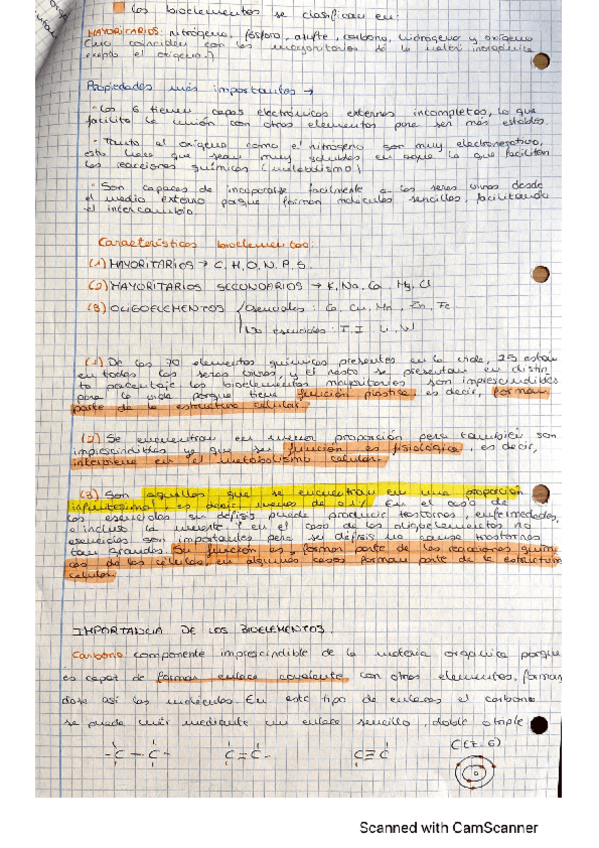 Los bioelementos se clasifican en:
MAYORITARIOS: nitrógeno, fósforo, azufre, carbono, hidrógeno y oxígeno
(no coinciden con los mayoritarios de la materia inorgánica
excepto el oxígeno.)
Propiedades más importantes →
- Los 6 tienen capas electrónicas externas incompletas, lo que
facilita la unión con otros elementos para ser más estables.
- Tanto el oxígeno como el nitrógeno son muy electronegativos,
esto hace que sean muy solubles en agua lo que facilitan
las reacciones químicas (metabolismo)
- Son capaces de incorporarse facilmente a los seres vivos desde
el medio externo porque forman moléculas sencillas, facilitando
el intercambio.
Características bioelementos:
(1) MAYORITARIOS → C, H, O, N, P, S.
(2) MAYORITARIOS SECUNDARIOS → K, Na, Ca, Mg, Cl
(3) OLIGOELEMENTOS esenciales: Co, Cu, Mn, Zn, Fe
No esenciales: I, Li, W
(1) De los 70 elementos químicos presentes en la vida, 25 están
en todos los seres vivos, y el resto se presentan en distin
to porcentaje. Los bioelementos mayoritarios son imprescindibles
para la vida porque tiene función plástica, es decir, forman
parte de la estructura celular.
(2) Se encuentran en menor proporción pero también son
imprescindibles ya que su función es fisiológica, es decir,
interviene en el metabolismo celular.
(3) Son aquellos que se encuentran en una proporción
infinitesimal, es decir, menos de 0,1%. En el caso de
los esenciales su déficis puede producir trastornos, enfermedades,
e incluso la muerte. Y en el caso de los oligoelementos no
esenciales son importantes pero su déficis no causa trastornos
tan grandes. Su función es, formar parte de las reacciones quími
cas de las células, en algunos casos forman parte de la estructura
celular.
IMPORTANCIA DE LOS BIOELEMENTOS.
Carbono componente imprescindible de la materia orgánica porque
es capaz de formar enlace covalente con otros elementos, formán
dose así las moléculas. En este tipo de enlaces el carbono
se puede unir mediante un enlace sencillo, doble o triple.
-C-C- C=C- C≡C C(Z=6)
Scanned with CamScanner